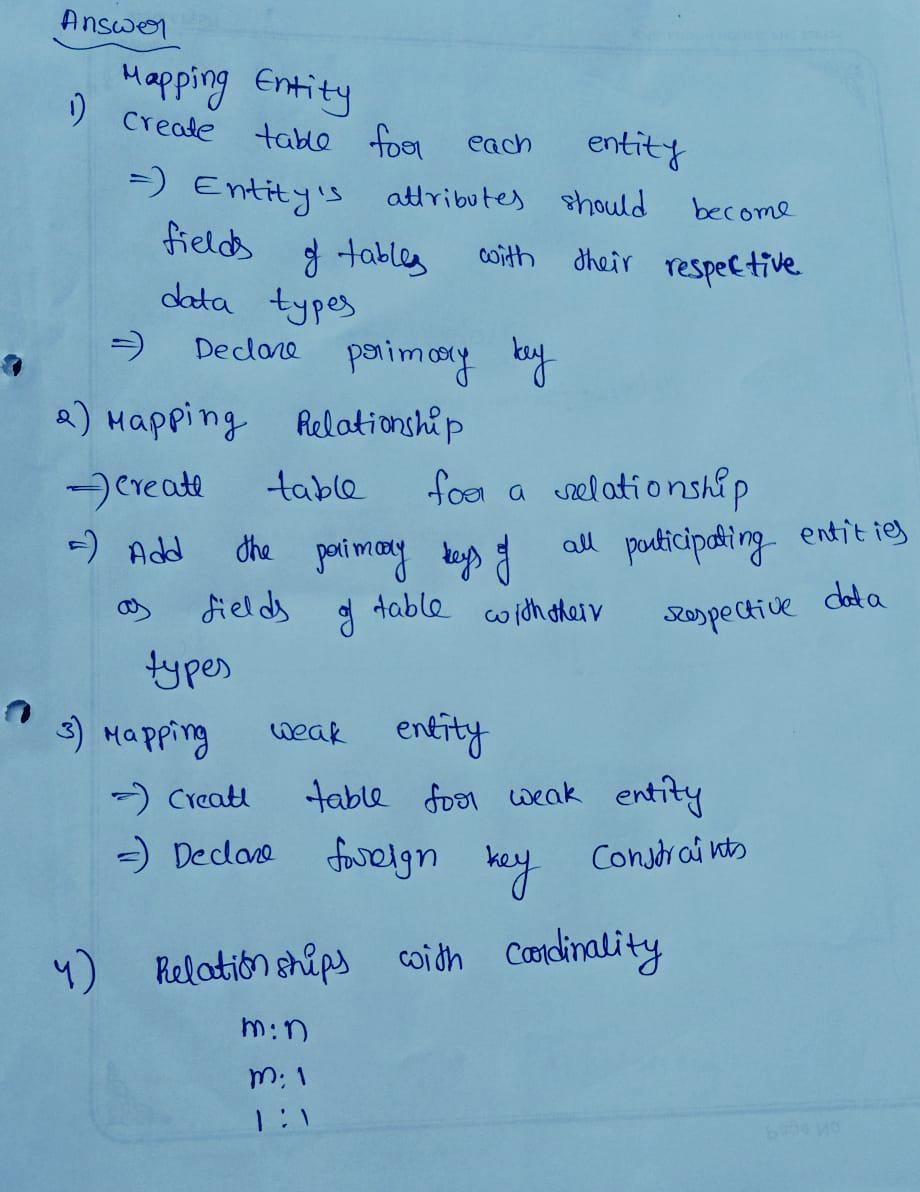 Answer
Mapping Entity
1) Create table for each entity
=) Entity's attributes should become
fields of tables with their respective
data types
=) Declare primary key
2) Mapping Relationship
=) Create table for a relationship
=) Add the primary keys of all participating entities
as fields of table with their respective data
types
3) Mapping weak entity
=) Create table for weak entity
=) Declare foreign key Constraints
4) Relationships with Cardinality
m:n
m:1
1:1